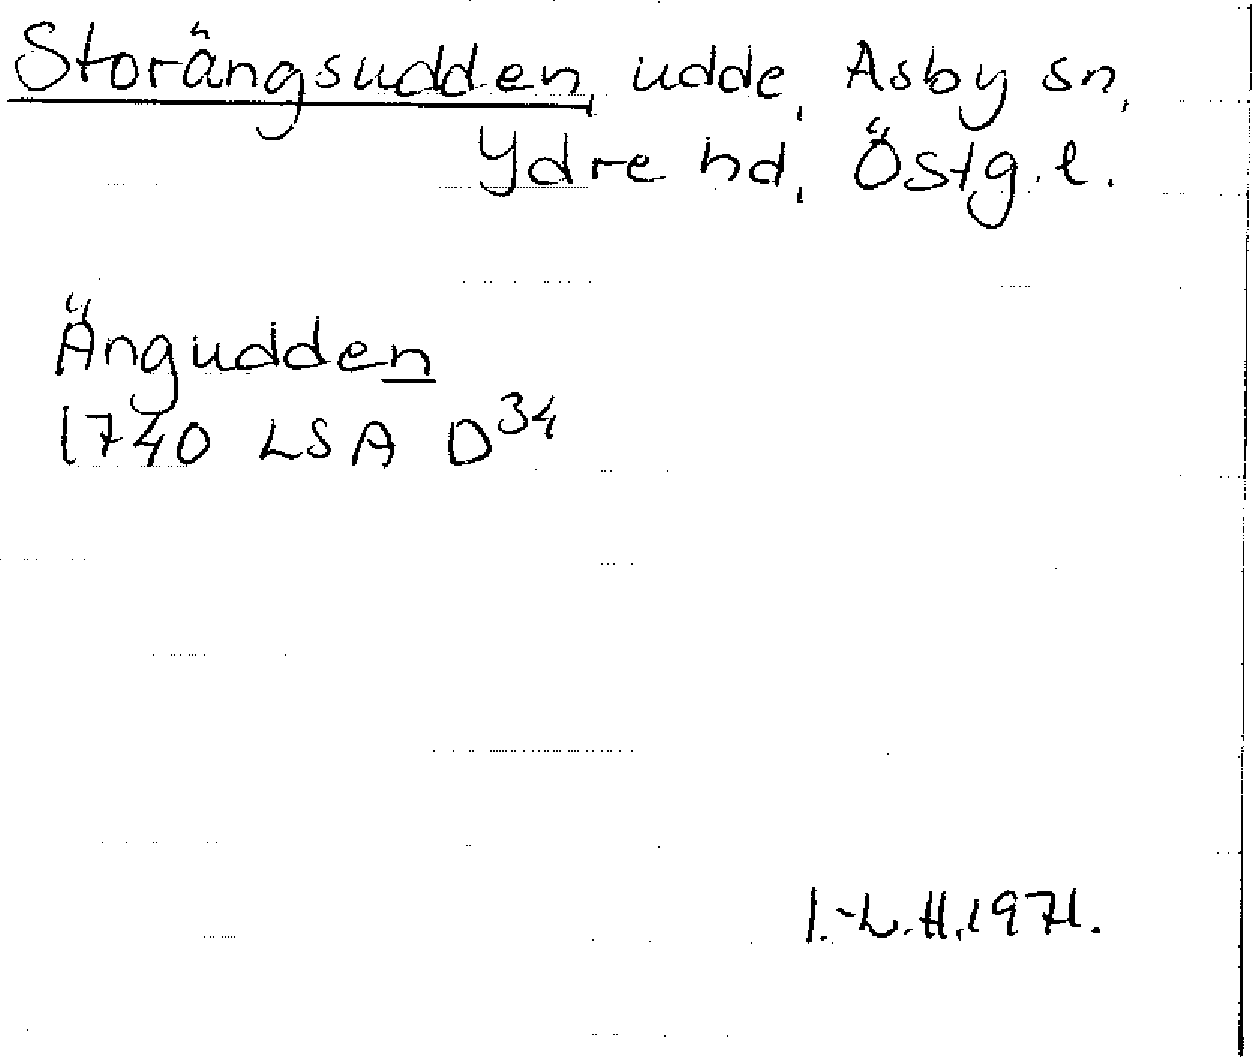 Storängsudden, udde, Asby sn,
Ydre hd, Östg.l.
Ängudden
1740 LSA D34
I.-L.H.1971.